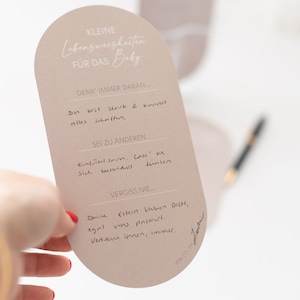 KLEINE
Lebensweisheiten
FÜR DAS Baby
DENK' IMMER DARAN...
Du bist stark & kannst
alles schaffen.
SEI ZU ANDEREN...
Einfühlsam. Lass' sie
sich besonders fühlen
VERGISS NIE...
Deine Eltern lieben Dich,
egal was passiert.
Vertraue ihnen, immer.